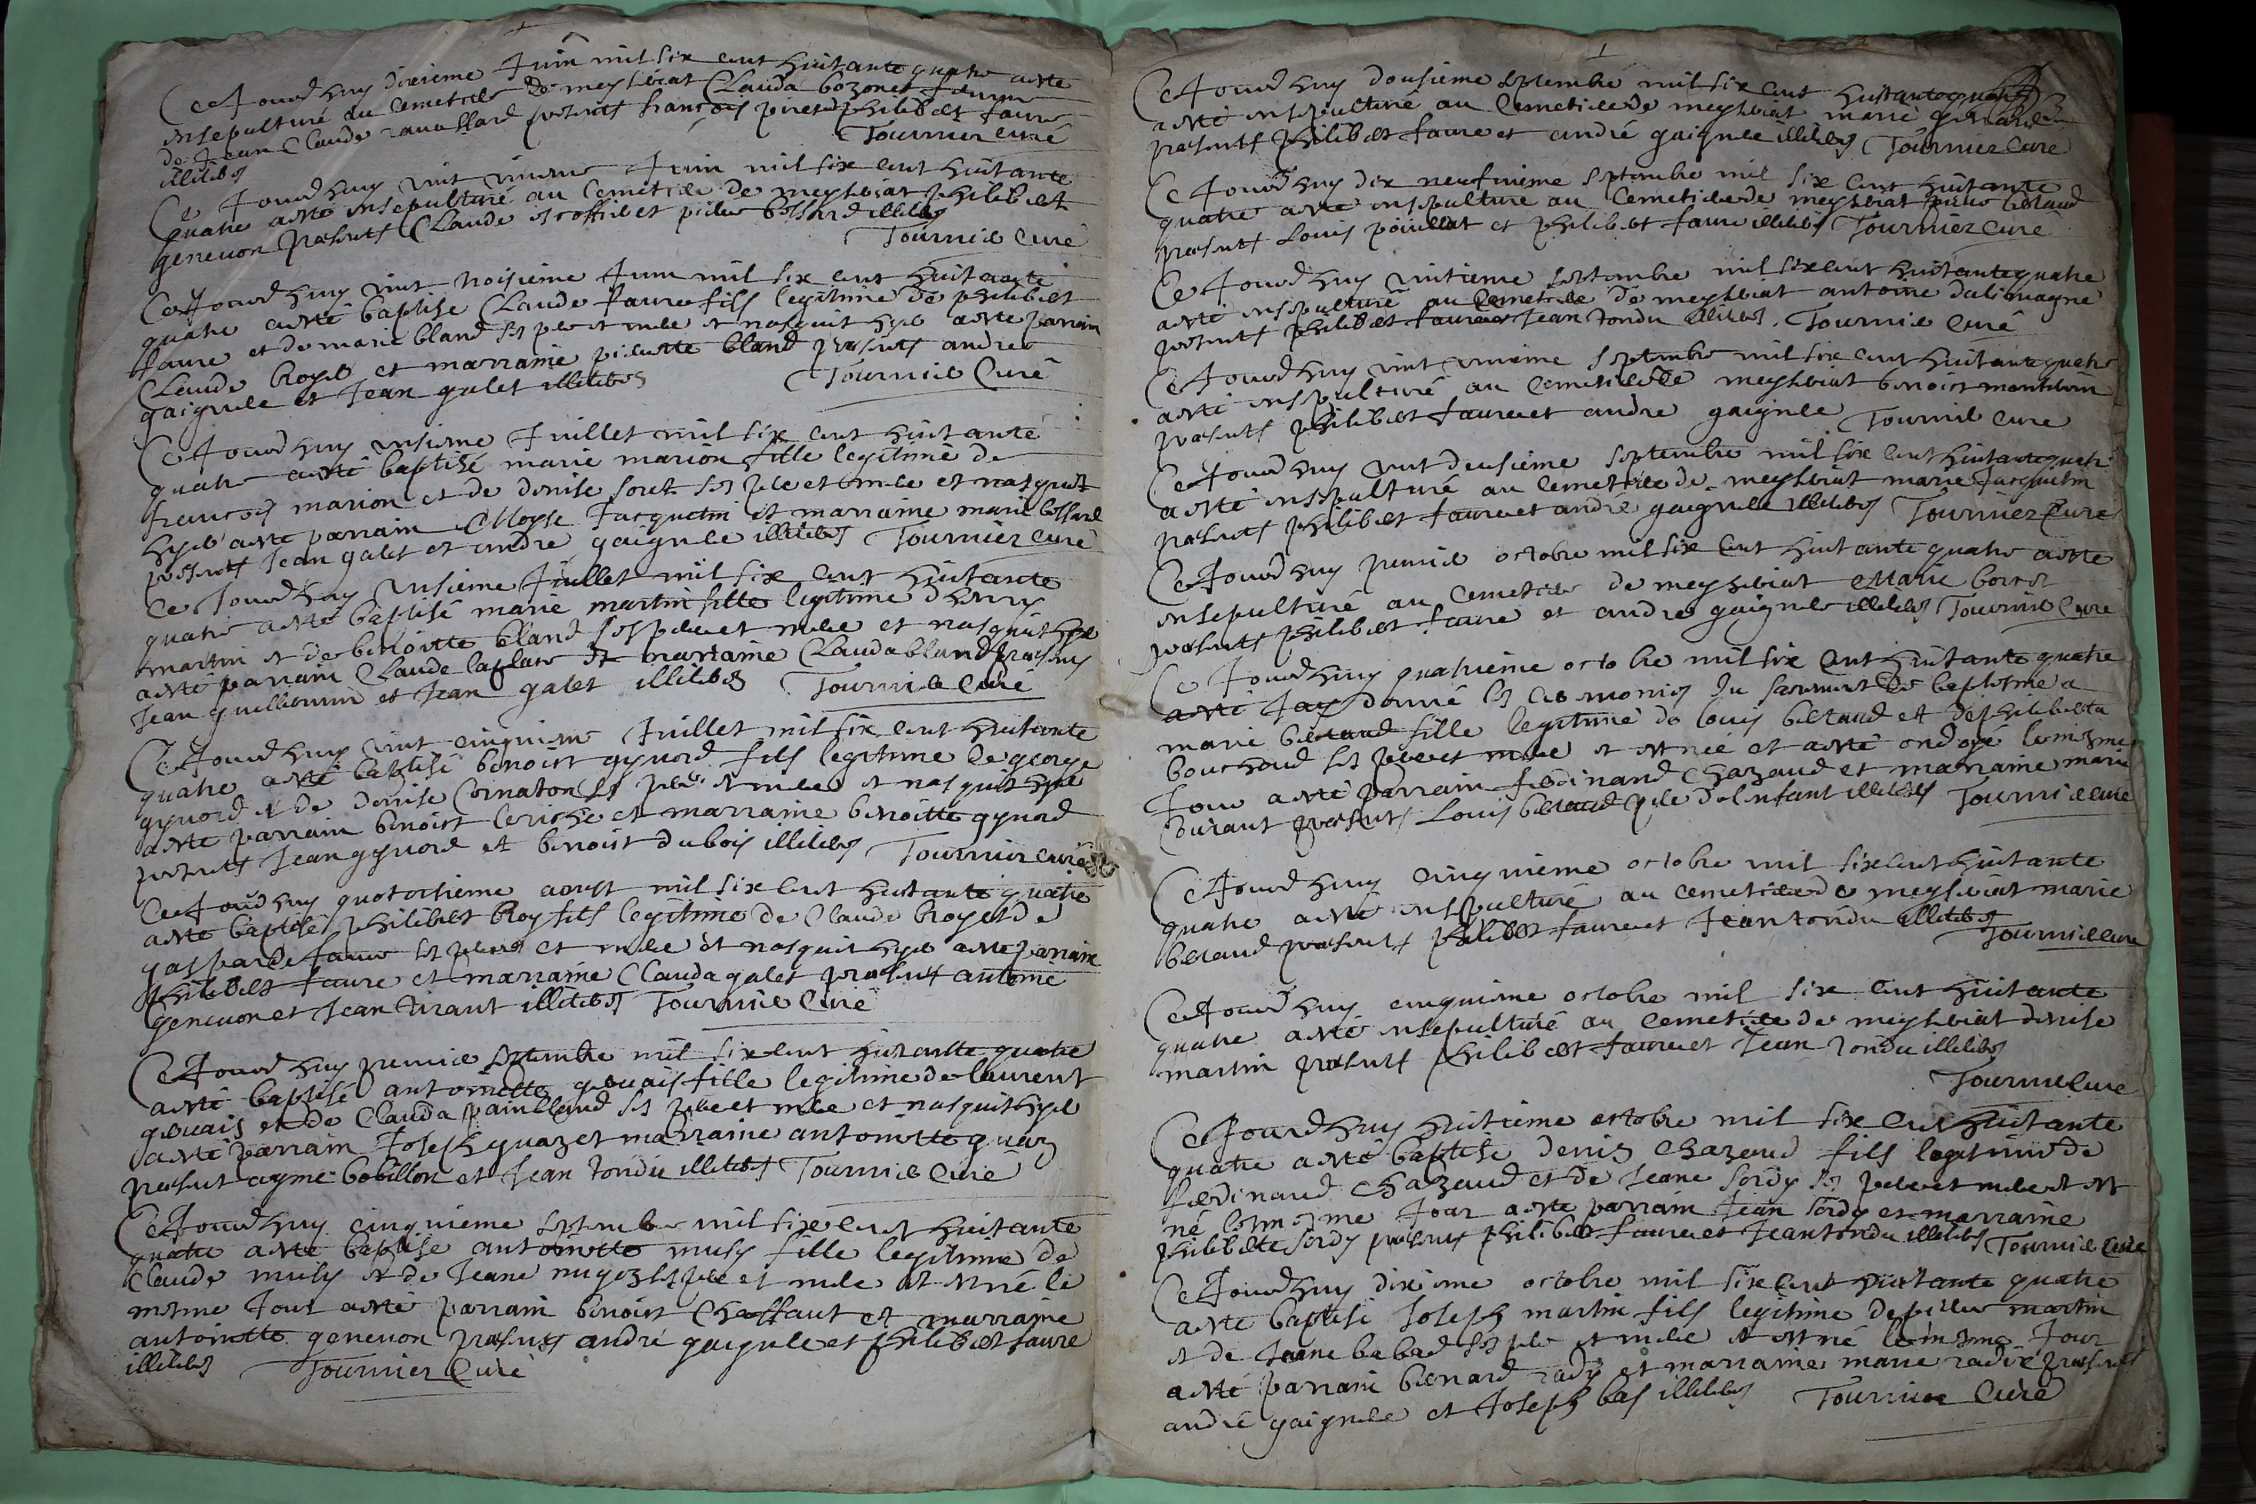 Ce Jourdhuy dixieme Juin mil six cent huitante quatre a este
ensepulturé au cemetiere de meyseriat Clauda bozonet femme
de Jean Claude ravassard presents françois piret philibert faure
illiteres Tournier curé
Ce Jourdhuy vint Juin mil six cent huitante
quatre a esté ensepulturé au cemetiere de meyseriat philibert
geneuon presents Claude escoffie et pierre bossard illiteres
Tournier curé
Ce Jourdhuy vint troisieme Juin mil six cent huitante
quatre a esté baptise Claude faure fils legitime de philibert
faure et de marie bland ses pere et mere et nasquit hyer a este parrain
Claude broyer et marraine pierrette bland presents andre
gaignere et Jean galet illiteres Tournier Curé
Ce Jourdhuy unsieme Juillet mil six cent huitante
quatre a esté baptisé marie marion fille legitime de
françois marion et de denise ses pere et mere et nasquit
hyer a este parrain Moyse Jacquetin et marraine marie bossard
presents Jean galet et andre gaignere illiteres Tournier curé
Ce Jourdhuy unsieme Juillet mil six cent huitante
quatre a esté baptisé marie martin fille legitime dhenry
martin et de benoitte bland ses pere et mere et nasquit hyer
a esté parrain Claude et marraine Clauda bland presents
Jean guillermin et Jean galet illiteres Tournier curé
Ce Jourdhuy vint cinquieme Juillet mil six cent huitante
quatre a esté baptisé benoist gynord fils legitime de george
gynord et de denise Cornaton ses pere et mere et nasquit hyer
a este parrain benoist ceriche et marraine benoitte gynord
presents Jean gynord et benoist dubois illiteres Tournier curé
Ce Jourdhuy quatortieme aoust mil six cent huitante quatre
a este baptisé philibert broy fils legitime de Claude broy et de
gasparde faure ses pere et mere et nasquit hyer a este parrain
philibert faure et marraine Clauda galet presents antoine
geneuon et Jean tirant illiteres Tournier curé
Ce Jourdhuy premier septembre mil six cent huitante quatre
a esté baptisé antoinette geruais fille legitime de laurent
geruais et de Clauda painbland ses pere et mere et nasquit hyer
a esté parrain Joseph guaz et marraine antoinette guaz
presents ayme bobillon et Jean tondu illiteres Tournier curé
Ce Jourdhuy cinquieme septembre mil six cent huitante
quatre a este baptisé antoinette musy fille legitime de
Claude musy et de Jeane ses pere et mere et est né le
mesme Jour a esté parrain benoist Chassaut et marraine
antoinette geneuon presents andré gaignere et philibert faure
illiteres Tournier curé
Ce Jourdhuy dousieme septembre mil six cent huitante quatre
a esté ensepulturé au cemetiere de meyseriat marie
presents philibert faure et andré gaignere illiteres Tournier curé
Ce Jourdhuy dix neufuieme septembre mil six cent huitante
quatre a este ensepulture au cemetiere de meyseriat pierre beraud
presents Louis et philibert faure illiteres Tournier curé
Ce Jourdhuy vintieme septembre mil six cent huitante quatre
a esté ensepulturé au cemetiere de meyseriat antoine dalimagne
presents philibert faure et Jean tondu illiteres. Tournier curé
Ce Jourdhuy vint unieme septembre mil six cent huitante quatre
a esté ensepulturé au cemetiere de meyseriat benoist
presents philibert faure et andre gaignere Tournier curé
Ce Jourdhuy vint deusieme septembre mil six cent huitante quatre
a esté ensepulturé au cemetiere de meyseriat marie Jacquetin
presents philibert faure et andré gaignere illiteres Tournier Curé
Ce Jourdhuy premier octobre mil six cent huitante quatre a este
ensepulturé au cemetiere de meyseriat Marie
presents philibert faure et andre gaignere illiteres Tournier Curé
Ce Jourdhuy quatrieme octobre mil six cent huitante quatre
a esté Jay donné les ceremonies du sacrement de baptesme a
marie beraud fille legitime de louis beraud et de philiberta
bouchoud ses pere et mere et est née et a esté ondoyé le mesme
Jour a esté parrain ferdinand Chazaud et marraine marie
durant presents Louis beraud pere de lenfant illiteres Tournier curé
Ce Jourdhuy cinquieme octobre mil six cent huitante
quatre a esté ensepulturé au cemetiere de meyseriat marie
beraud presents philibert faure et Jean tondu illiteres
Tournier curé
Ce Jourdhuy cinquieme octobre mil six cent huitante
quatre a esté ensepulturé au cemetiere de meyseriat denise
martin presents philibert faure et Jean tondu illiteres
Tournier Curé
Ce Jourdhuy huitieme octobre mil six cent huitante
quatre a esté baptisé denis Chazaud fils legitime de
ferdinand Chazaud et de Jeane sordy ses pere et mere et est
né le mesme Jour a este parrain Jean sordy et marraine
philiberte sordy presents philibert faure et Jean tondu illiteres Tournier Curé
Ce Jourdhuy dixieme octobre mil six cent huitante quatre
a este baptisé Joseph martin fils legitime de pierre martin
et de Jeane babad ses pere et mere et est né le mesme Jour
a esté parrain bernard rady et marraine marie radix presents
andré gaignere et Joseph bas illiteres Tournier Curé